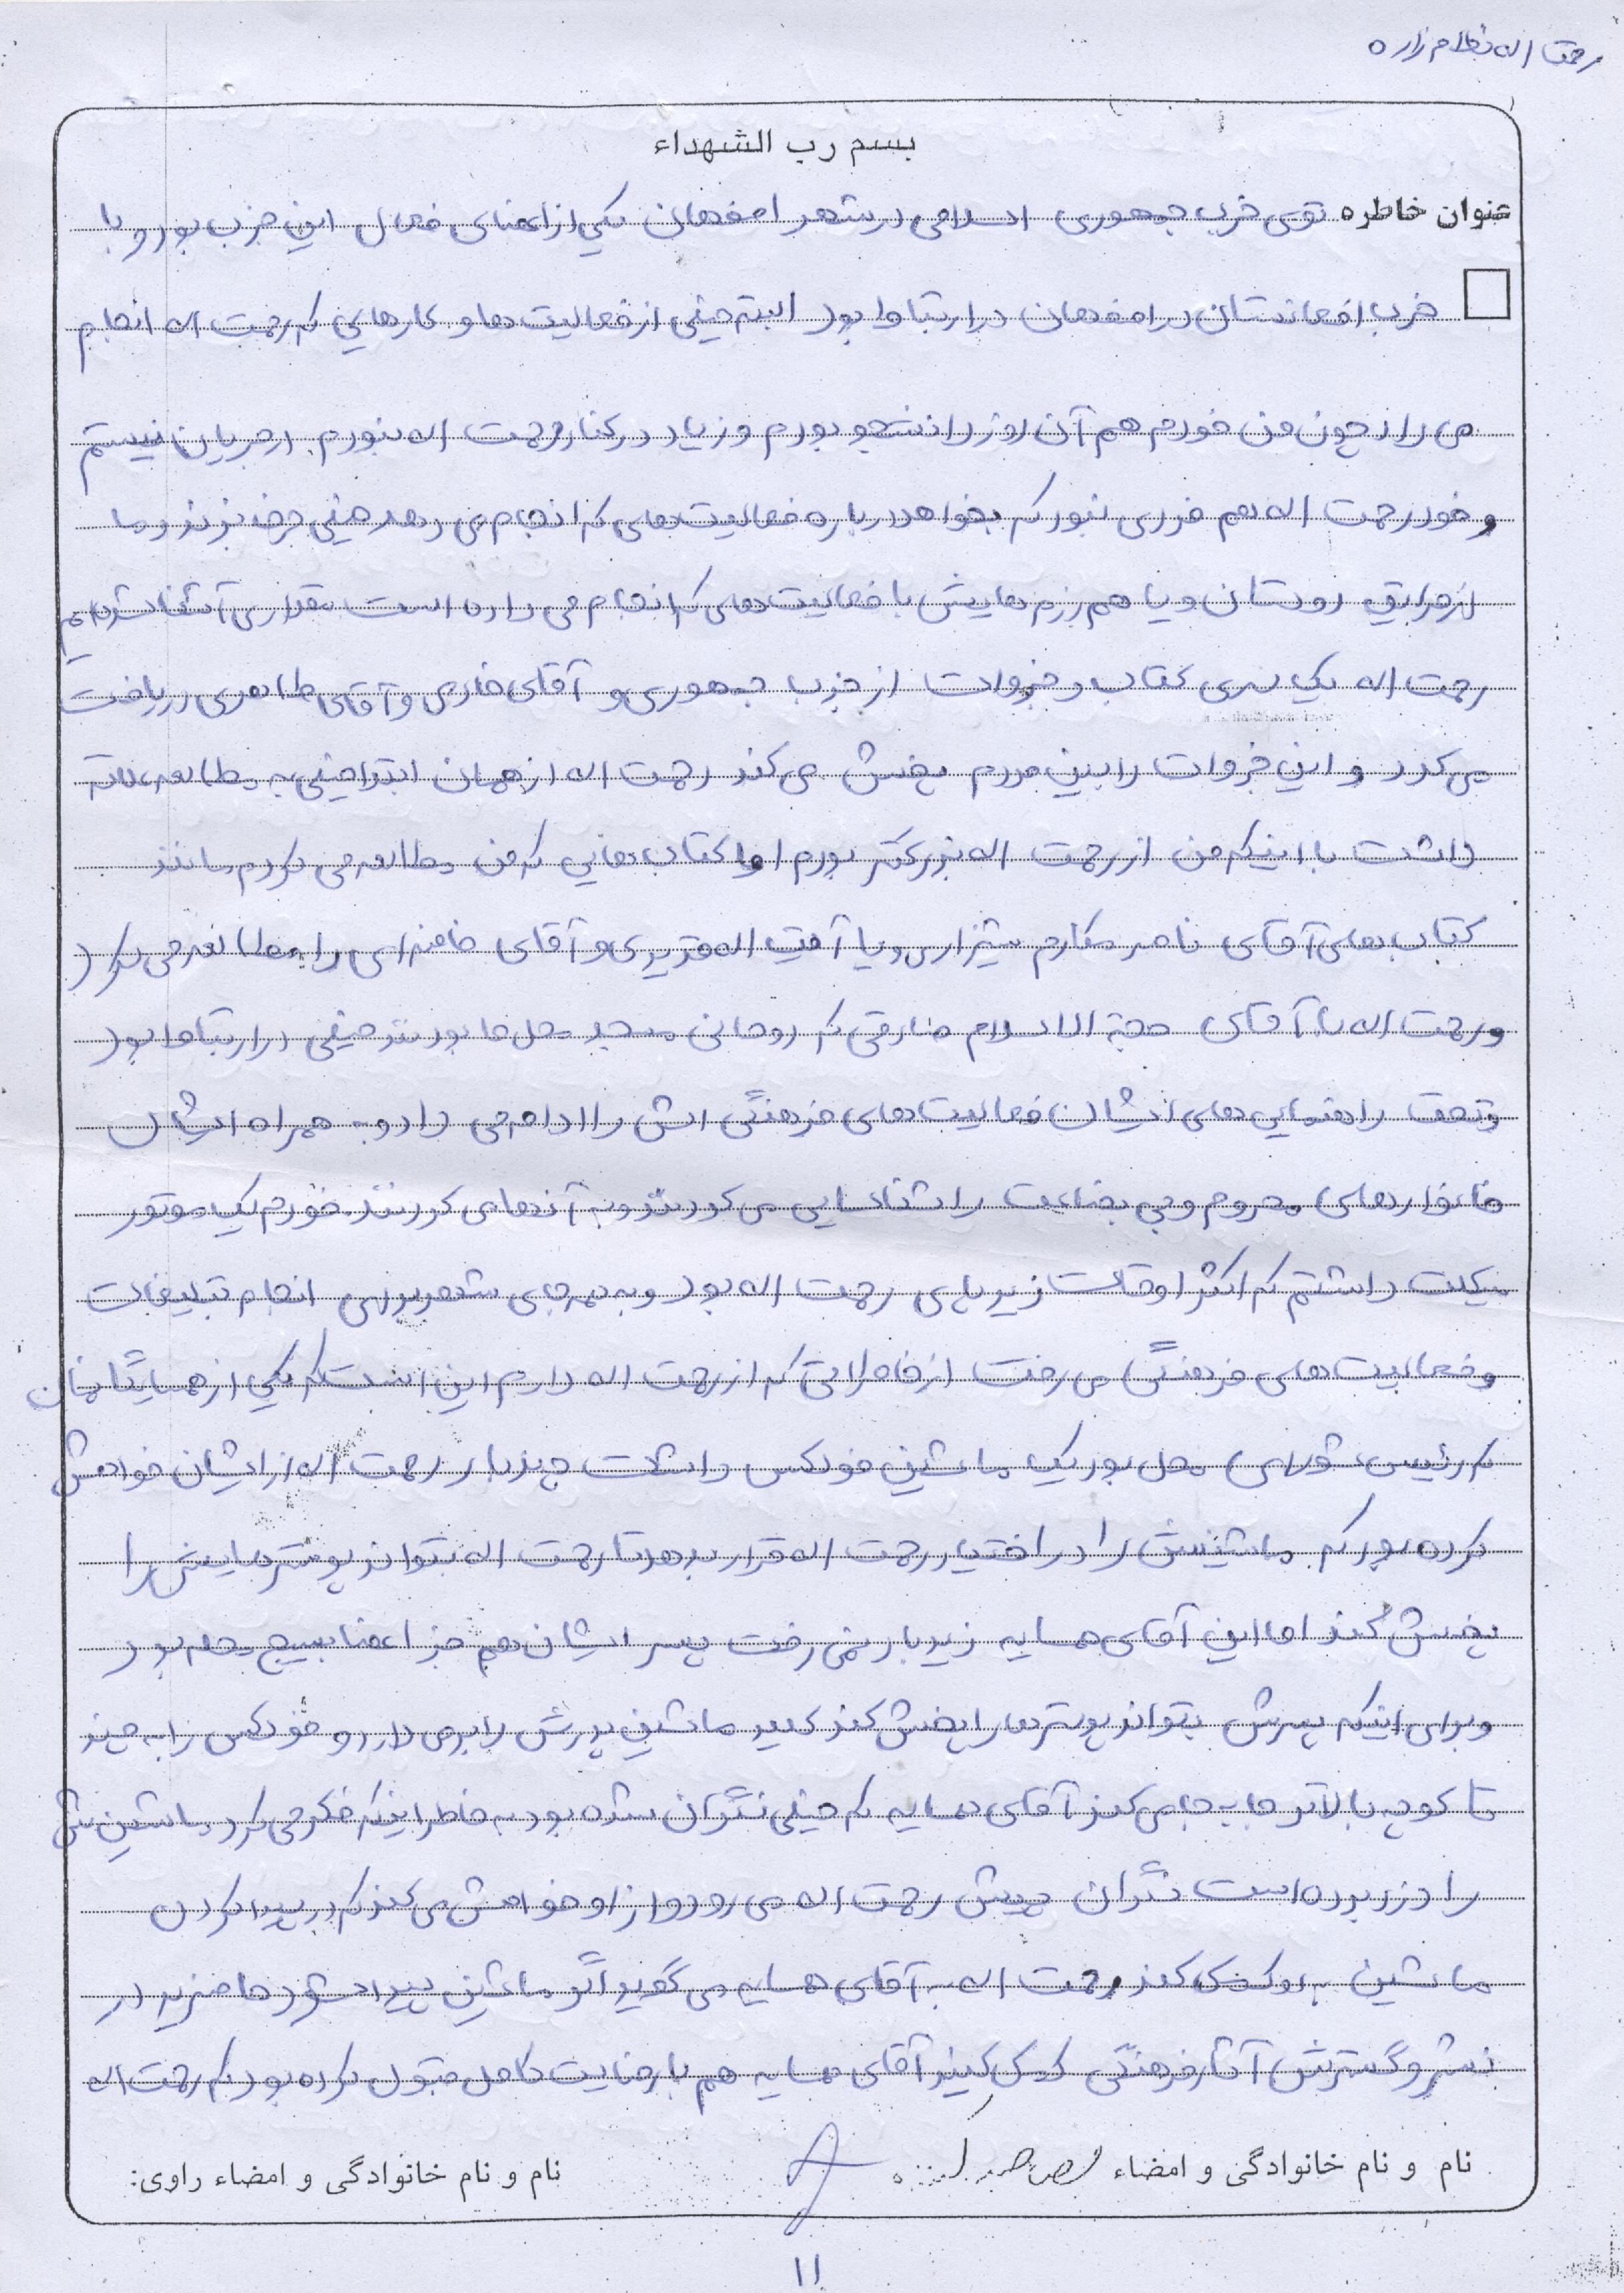 رحمت اله غلام زاده
بسم رب الشهداء
عنوان خاطره توی حزب جمهوری اسلامی در شهر اصفهان یکی از اعضای فعال این حزب بود و با
حزب افغانستان در اصفهان در ارتباط بود البته خیلی از فعالیت ها و کارهایی که رحمت اله انجام
می داد چون من خودم هم آن روز دانشجو بودم و زیاد در کنار رحمت اله نبودم در جریان نیستم
و خود رحمت اله هم فردی نبود که بخواهد درباره فعالیت های که انجام می دهد خیلی حرف بزند و ما
از طریق دوستان و یا هم رزم هایش با فعالیت های که انجام می داده است مقداری آشنا شده ایم
رحمت اله یک سری کتاب و جزوات از حزب جمهوری و آقای و آقای طاهری دریافت
می کرد و این جزوات را بین مردم پخش می کند رحمت اله از همان ابتدا خیلی به مطالعه علاقه
داشت با اینکه من از رحمت اله بزرگتر بودم اما کتاب هایی که من مطالعه می کردم مانند
کتاب های آقای ناصر مکارم شیرازی و یا آیت اله و آقای خامنه ای را مطالعه می کرد
و رحمت اله با آقای حجة الاسلام صادقی که روحانی مسجد محل ما بودند خیلی در ارتباط بود
و تحت راهنمایی های ایشان فعالیت های فرهنگی اش را ادامه می داد و به همراه ایشان
خانوارهای محروم و بی بضاعت را شناسایی می کردند و به آنها می کردند. خودم یک موتور
سیکلت داشتم که اکثر اوقات زیر پای رحمت اله بود و به همه جای شهر برای انجام تبلیغات
و فعالیت های فرهنگی می رفت از خاطراتی که از رحمت اله دارم این است که یکی از همسایگانمان
که رئیس شورای محل بود یک ماشین فولکس داشت چند بار رحمت اله از ایشان خواهش
کرده بود که ماشینش را در اختیار رحمت اله قرار بدهد تا رحمت اله بتواند پوسترهایش را
پخش کند اما این آقای همسایه زیر بار نمی رفت پسر ایشان هم جز اعضا بسیج محله بود
و برای اینکه پسرش بتواند پوسترها را پخش کند کلید ماشین پدرش را برمی دارد و فولکس را به چند
تا کوچه بالاتر جا به جا می کند آقای همسایه که خیلی نگران شده بود به خاطر اینکه فکر می کرد ماشینش
را دزد برده است نگران پیش رحمت اله می رود و از او خواهش می کند که در پیدا کردن
ماشین به او کمک کند رحمت اله به آقای همسایه می گوید اگر ماشین پیدا شود حاضرید در
نشر و گسترش آثار فرهنگی کمک کنید آقای همسایه هم با رضایت کامل قبول کرده بود که رحمت اله
نام و نام خانوادگی و امضاء
نام و نام خانوادگی و امضاء راوی:
۱۱